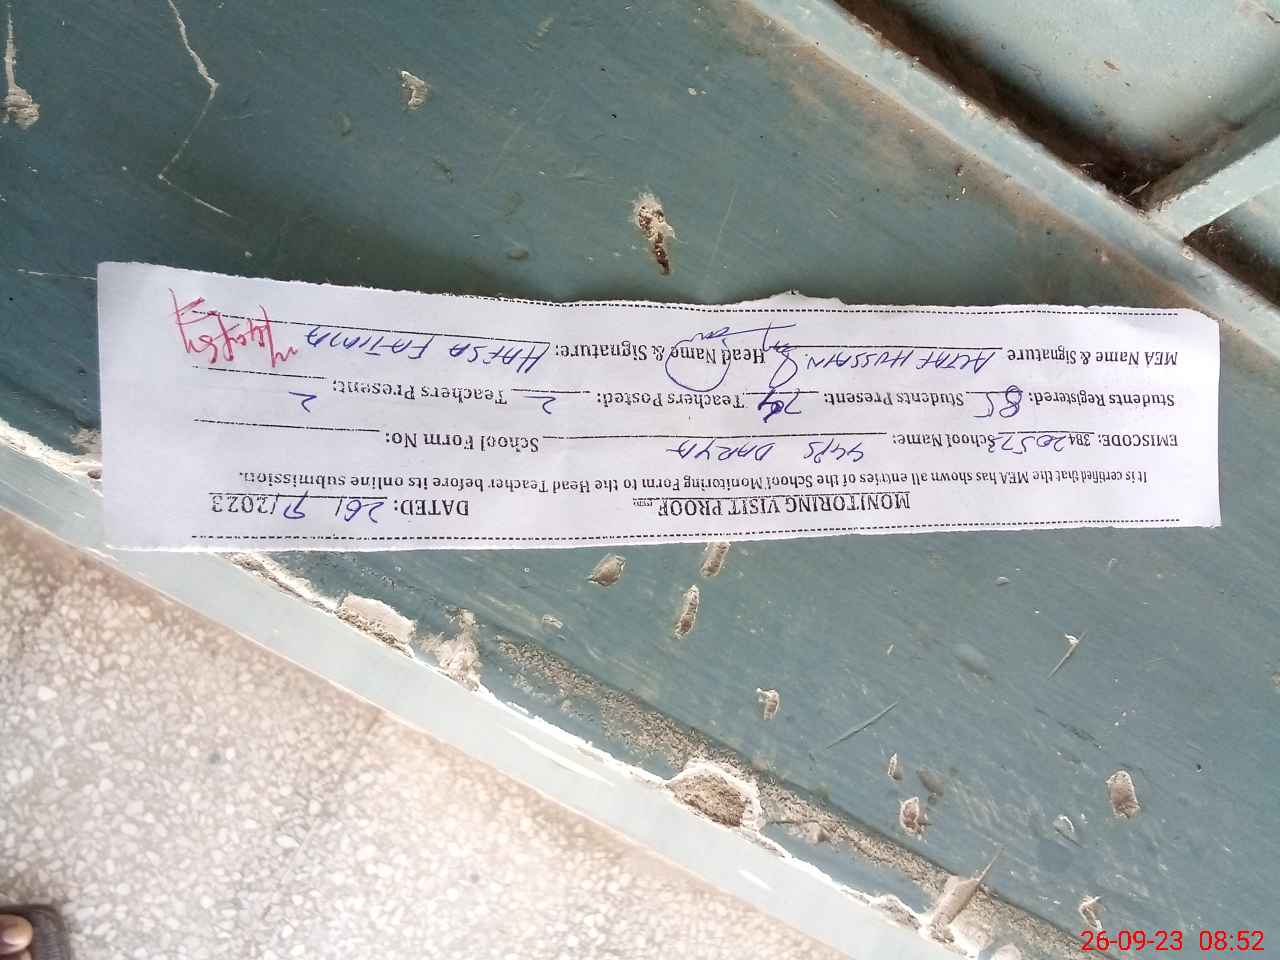 MONITORING VISIT PROOF DATED: 26/ 9/2023
It is certified that the MEA has shown all entries of the School Monitoring Form to the Head Teacher before its online submission.
EMISCODE: 38420573 School Name: GGPS DARYA School Form No:
Students Registered: 85 Students Present: 74 Teachers Posted: 2 Teachers Present: 2
MEA Name & Signature ALTAF HUSSAIN. Head Name & Signature: HAFSA FATIMA
26-09-23 08:52